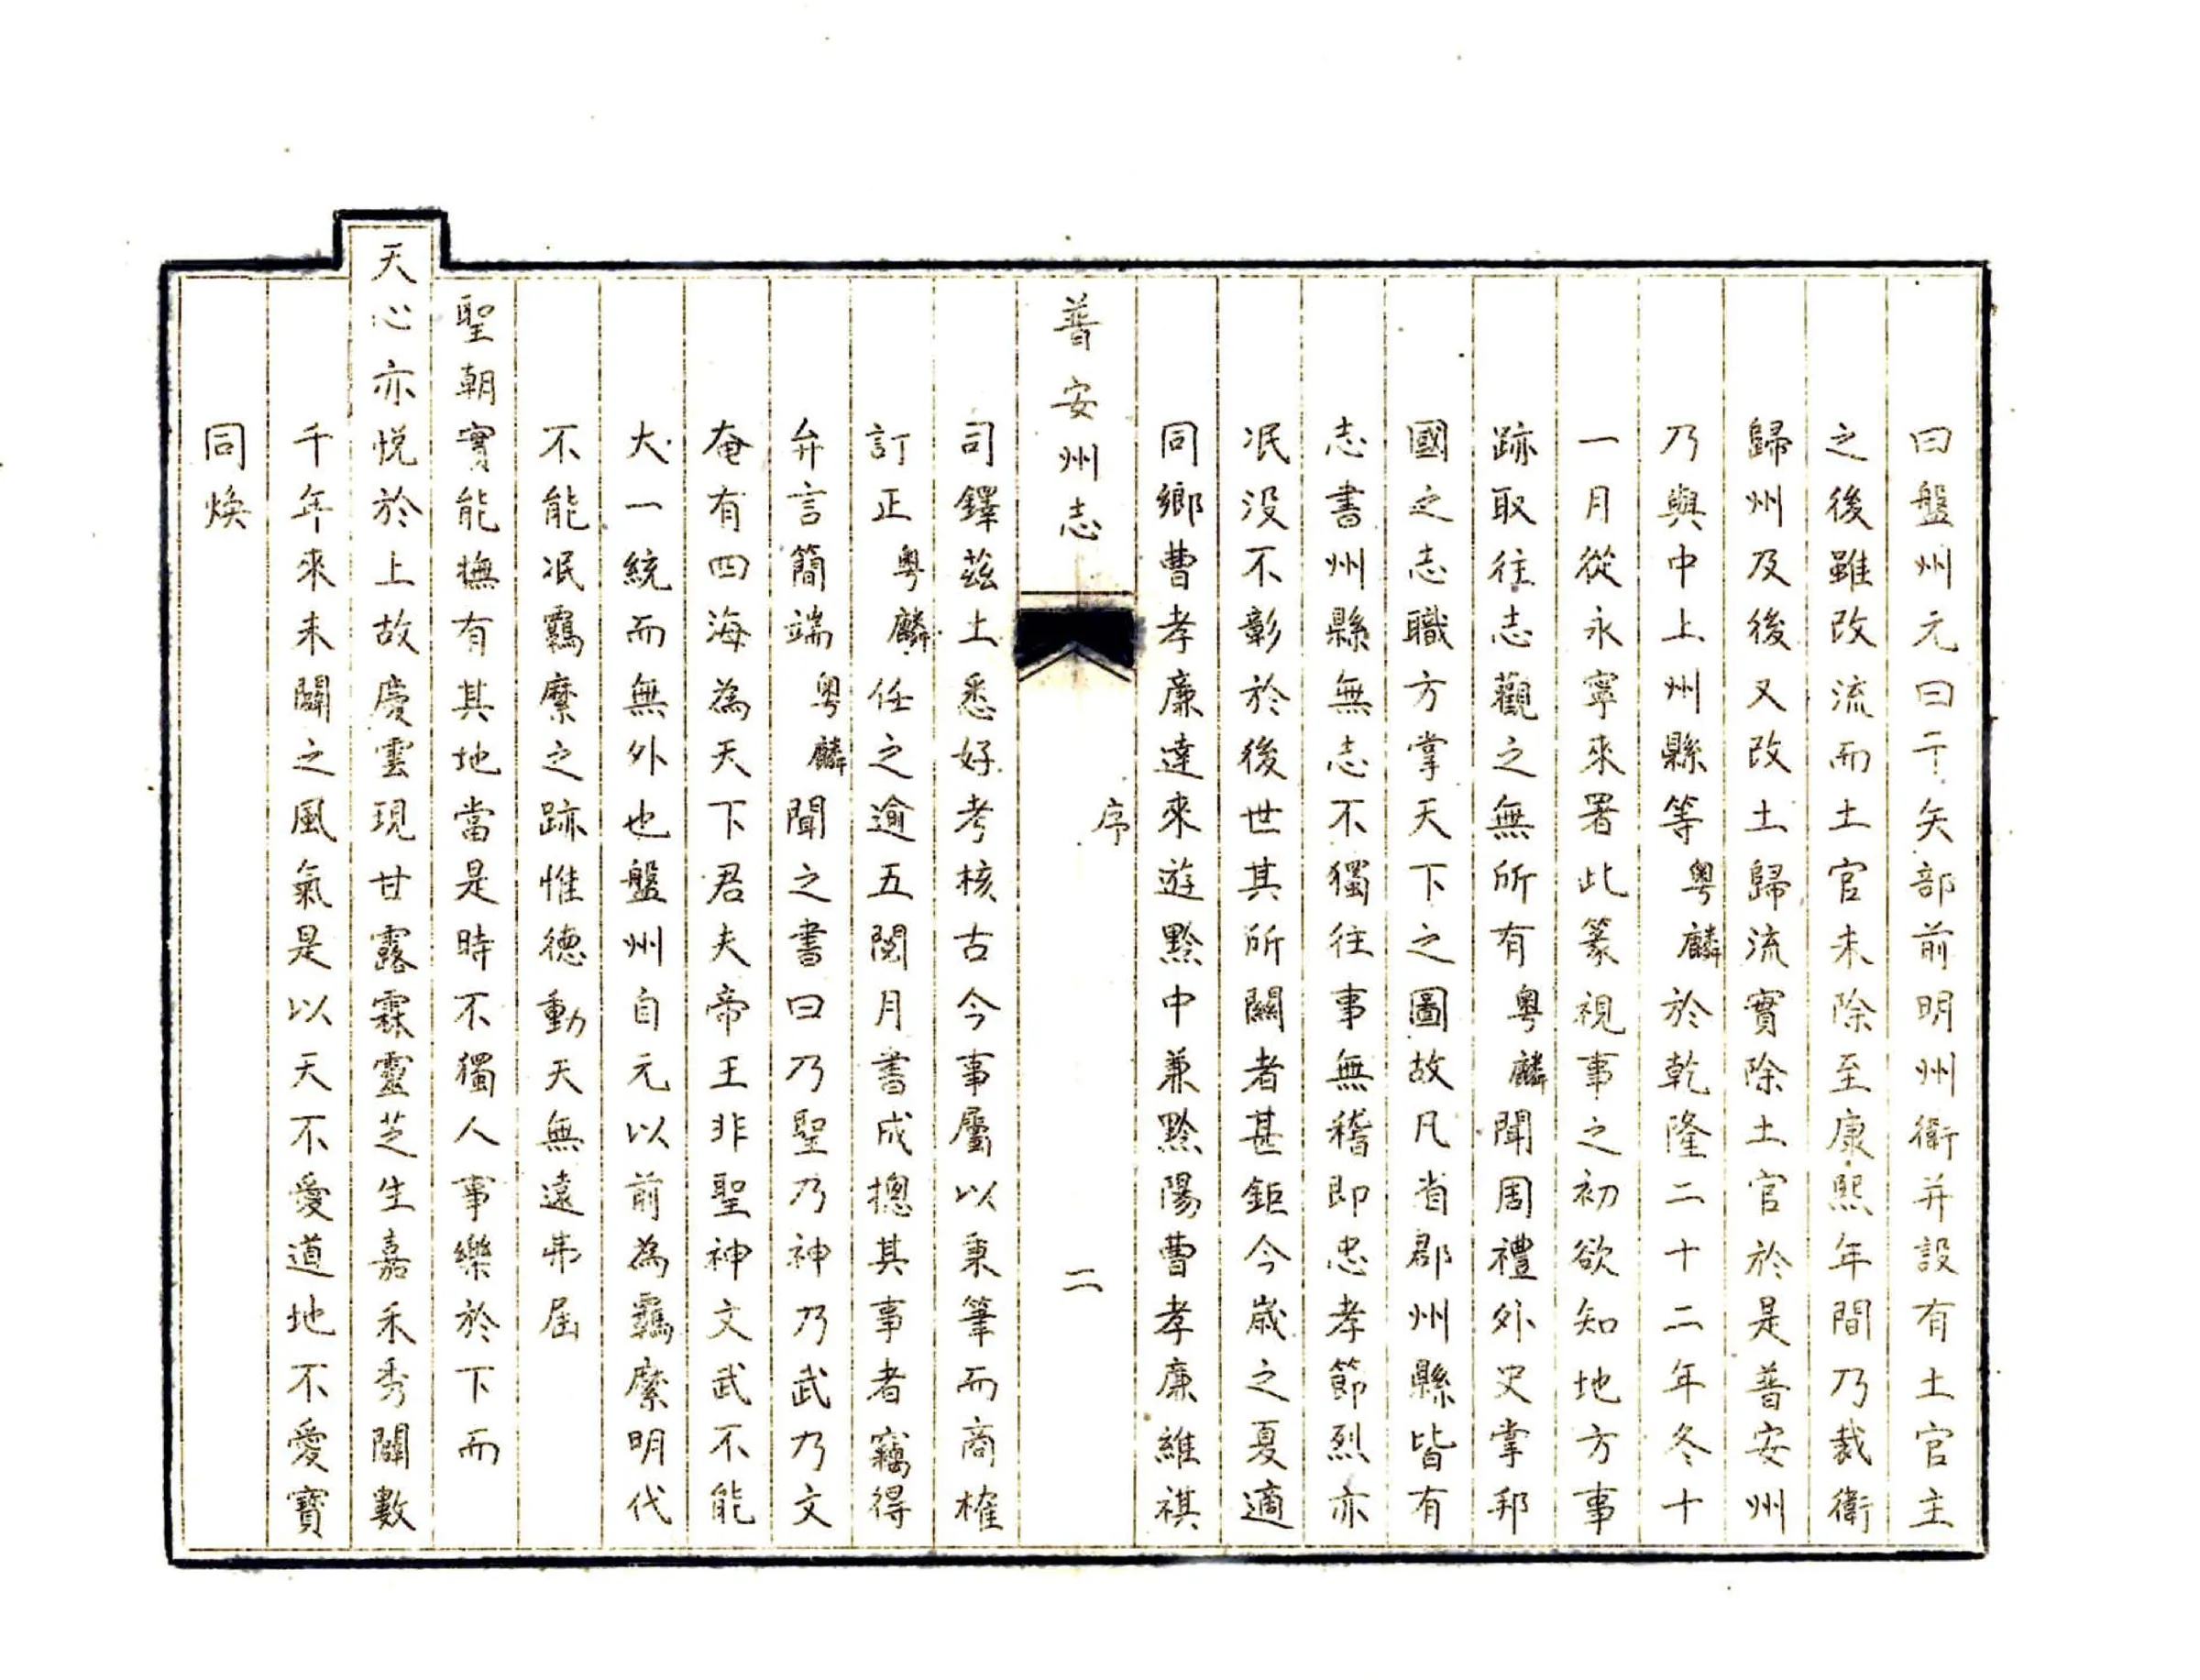 曰盤州元曰于矢部前明州衛并設有土官主
之後雖改流而土官未除至康熙年間乃裁衛
歸州及後又改土歸流實除土官於是普安州
乃與中上州縣等粵麟於乾隆二十二年冬十
一月從永寧來署此篆視事之初欲知地方事
跡取往志觀之無所有粵麟聞周禮外史掌邦
國之志職方掌天下之圖故凡省郡州縣皆有
志書州縣無志不獨往事無稽即忠孝節烈亦
泯没不彰於後世其所關者甚鉅今歲之夏適
同鄉曹孝廉達來遊黔中兼黔陽曹孝廉維祺
普安州志
序
二
司鐸茲土悉好考核古今事屬以秉筆而商榷
訂正粵麟任之逾五閱月書成摠其事者竊得
弁言簡端粵麟聞之書曰乃聖乃神乃武乃文
奄有四海為天下君夫帝王非聖神文武不能
大一統而無外也盤州自元以前為羈縻明代
不能泯羈縻之跡惟德動天無遠弗屆
聖朝實能撫有其地當是時不獨人事樂於下而
天心亦悦於上故慶雲現甘露霖靈芝生嘉禾秀闢數
千年來未闢之風氣是以天不愛道地不愛寶
同煥